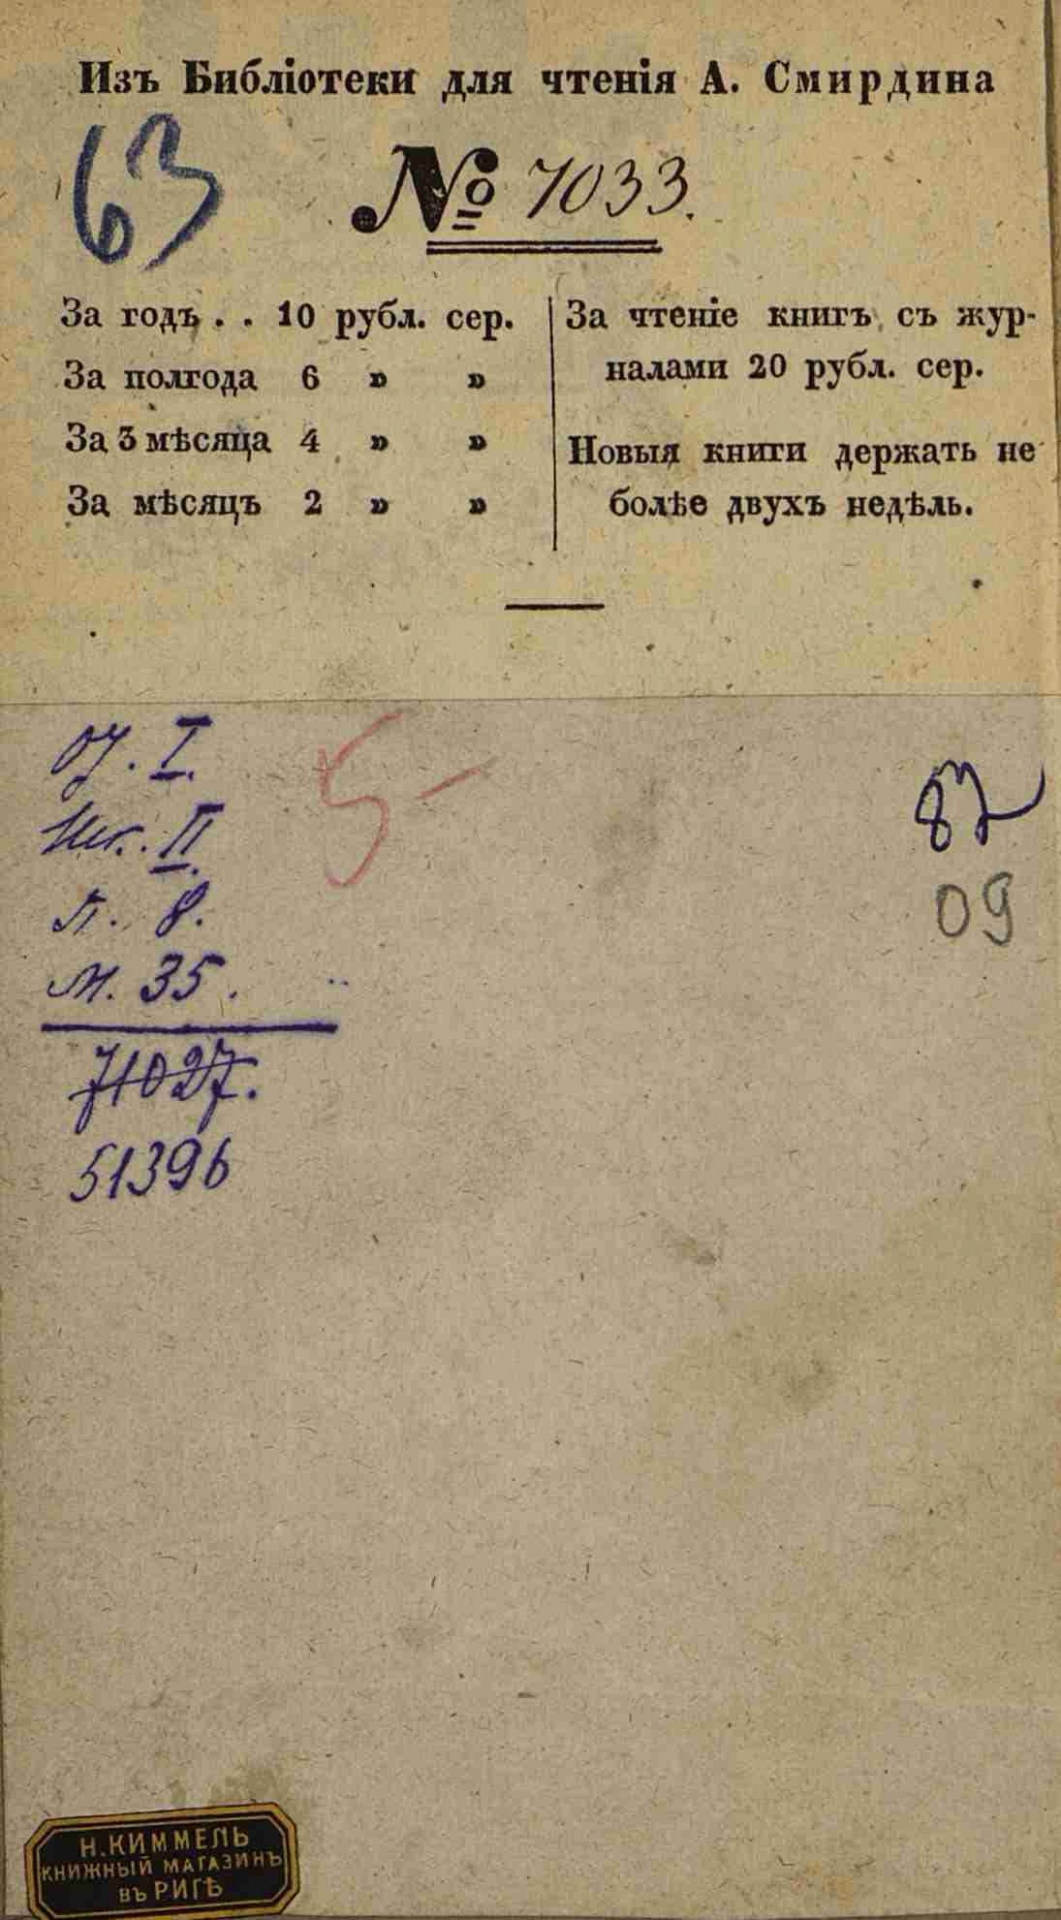 Изъ Библіотеки для чтенія А. Смирдина
63
№ 7033.
За годъ . . 10 рубл. сер.
За полгода 6 » »
За 3 мѣсяца 4 » »
За мѣсяцъ 2 » »
За чтеніе книгъ съ жур-
налами 20 рубл. сер.
Новыя книги держать не
болѣе двухъ недѣль.
I.
5-
87
Шк. II.
П. 8.
09
М. 35.
71027.
51396
Н. КИММЕЛЬ
КНИЖНЫЙ МАГАЗИНЪ
ВЪ РИГѢ